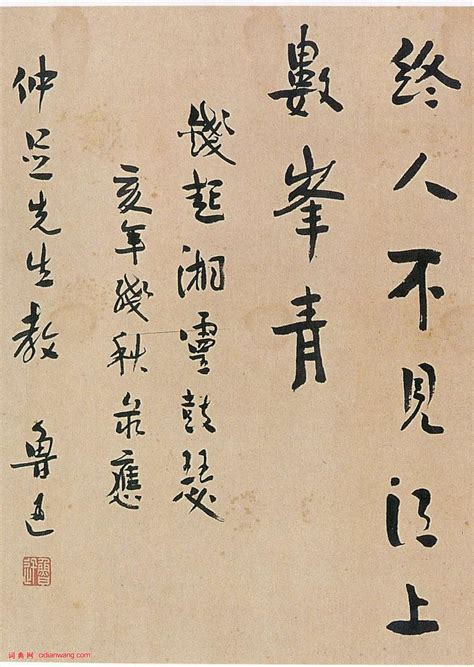 終人不見江上
數峯青
錢起湘靈鼓瑟
亥年殘秋彔應
仲足先生教 魯迅
魯迅
词典网 cidianwang.com